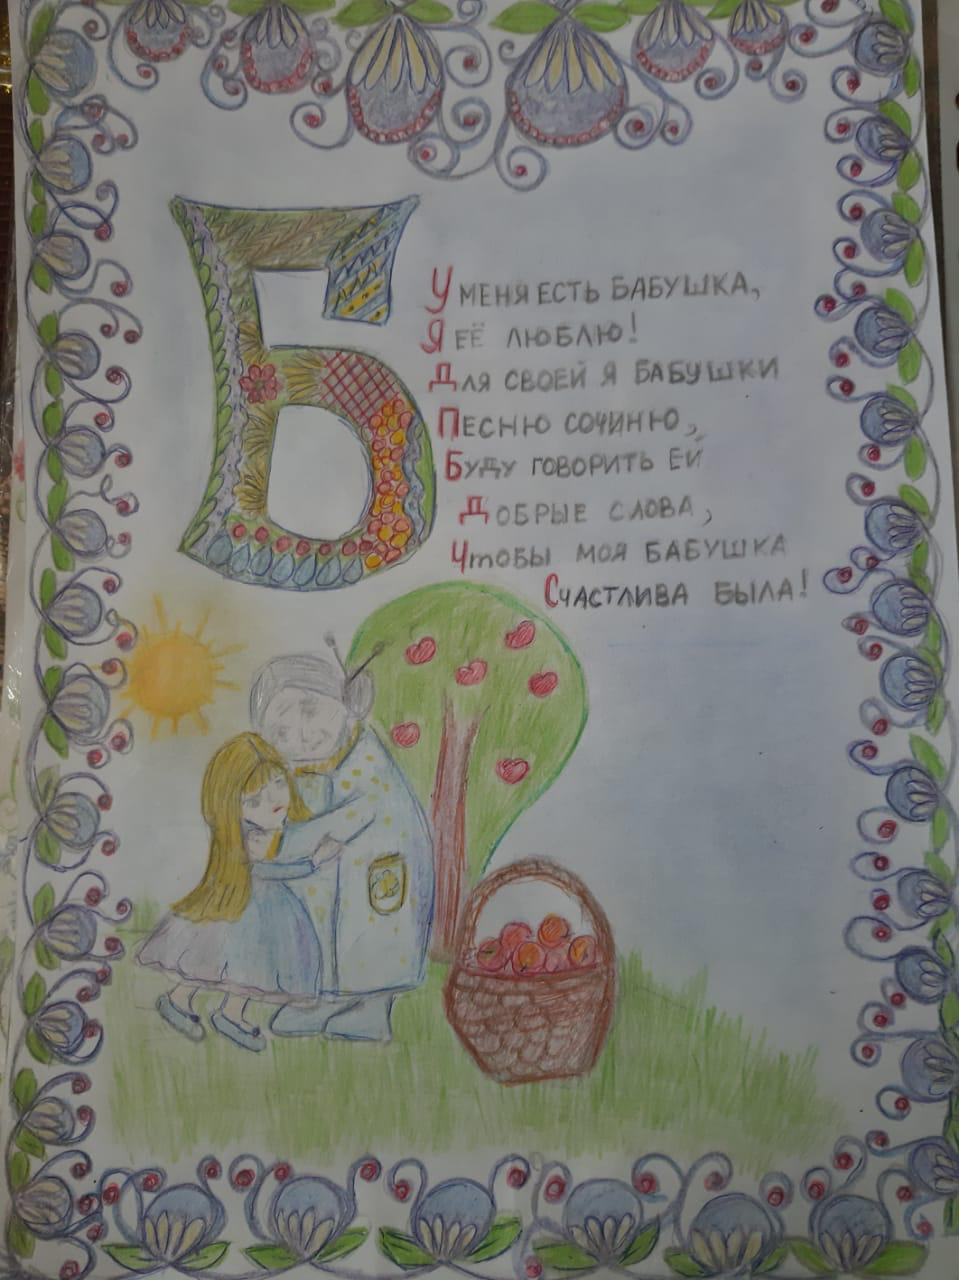 Б
У МЕНЯ ЕСТЬ БАБУШКА,
Я ЕЁ ЛЮБЛЮ!
ДЛЯ СВОЕЙ Я БАБУШКИ
ПЕСНЮ СОЧИНЮ,
БУДУ ГОВОРИТЬ ЕЙ
ДОБРЫЕ СЛОВА,
ЧТОБЫ МОЯ БАБУШКА
СЧАСТЛИВА БЫЛА!